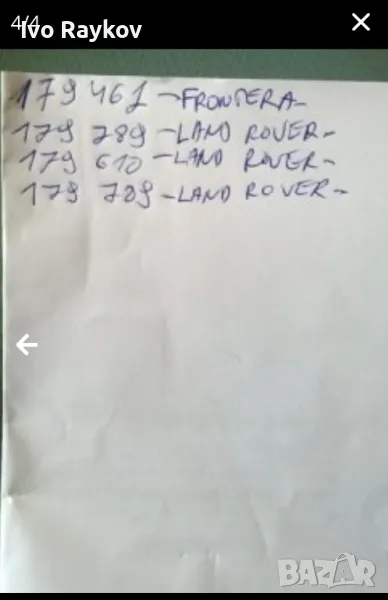 4/4
Ivo Raykov
179 461 - FRONTERA -
179 789 - LAND ROVER -
179 610 - LAND ROVER -
179 789 - LAND ROVER -
BAZAR